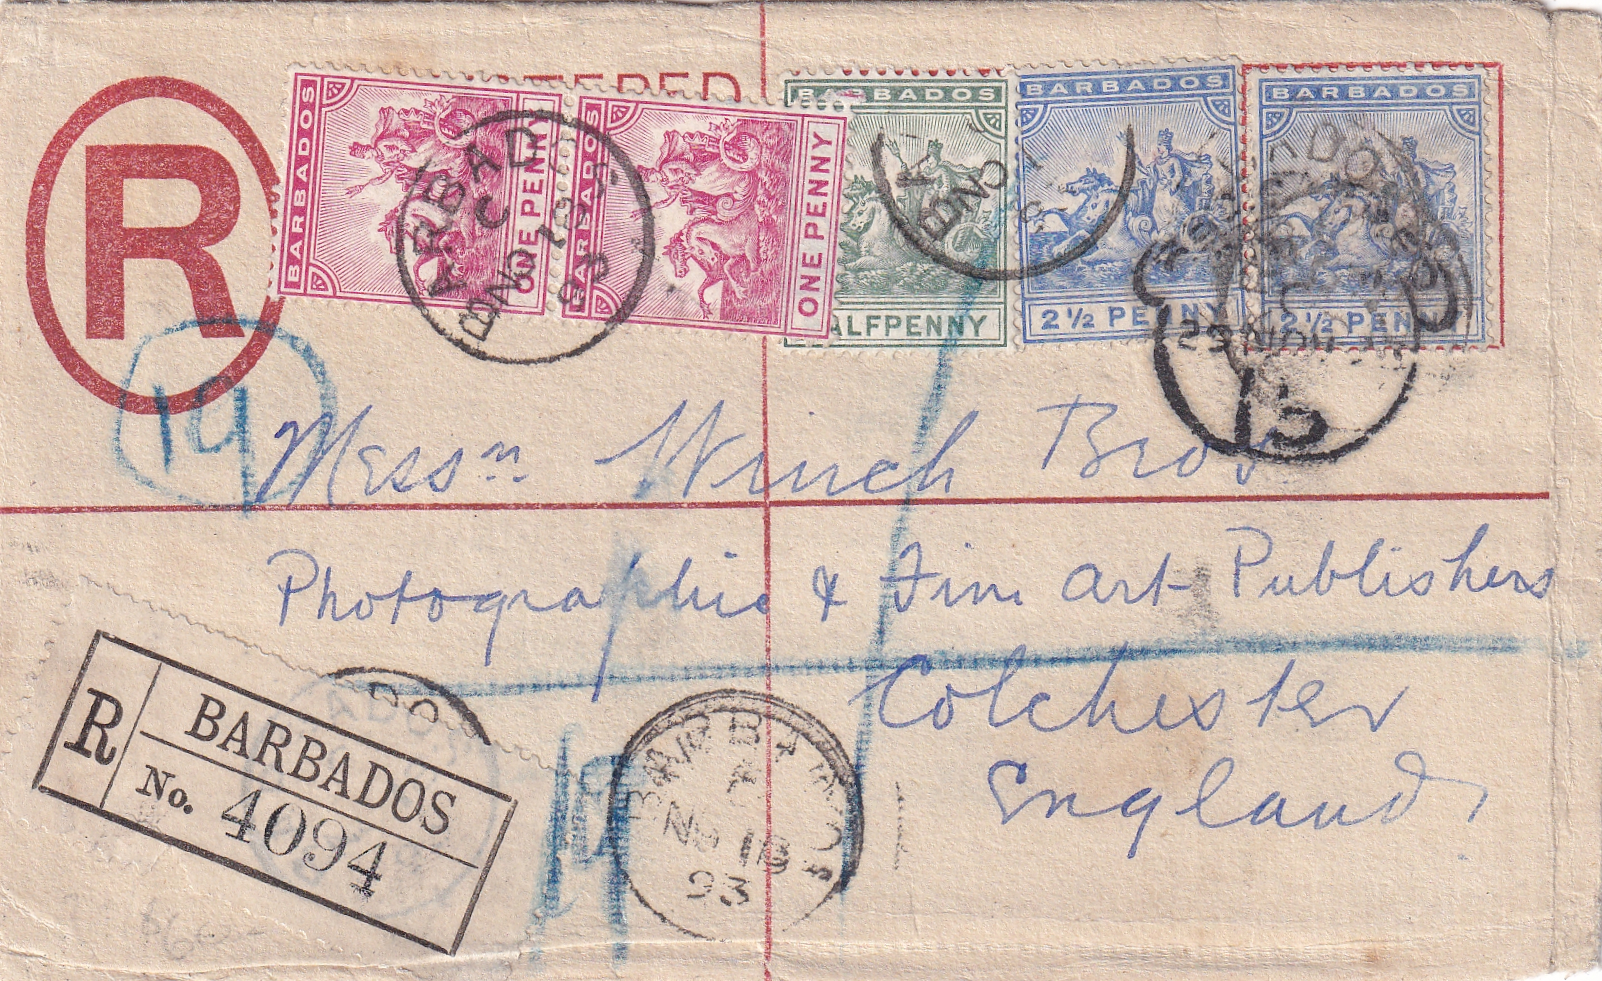 R
TERED
BARBADOS
ONE PENNY
BARBADOS
ONE PENNY
BARBADOS
HALFPENNY
BARBADOS
2½ PENNY
BARBADOS
2½ PENN
BARBAD
C
NO 18
93
19
Messrs Winch Bros
Photographic & Fine Art Publishers
Colchester
England
R
BARBADOS
No. 4094
BARBADOS
C
NO 18
93